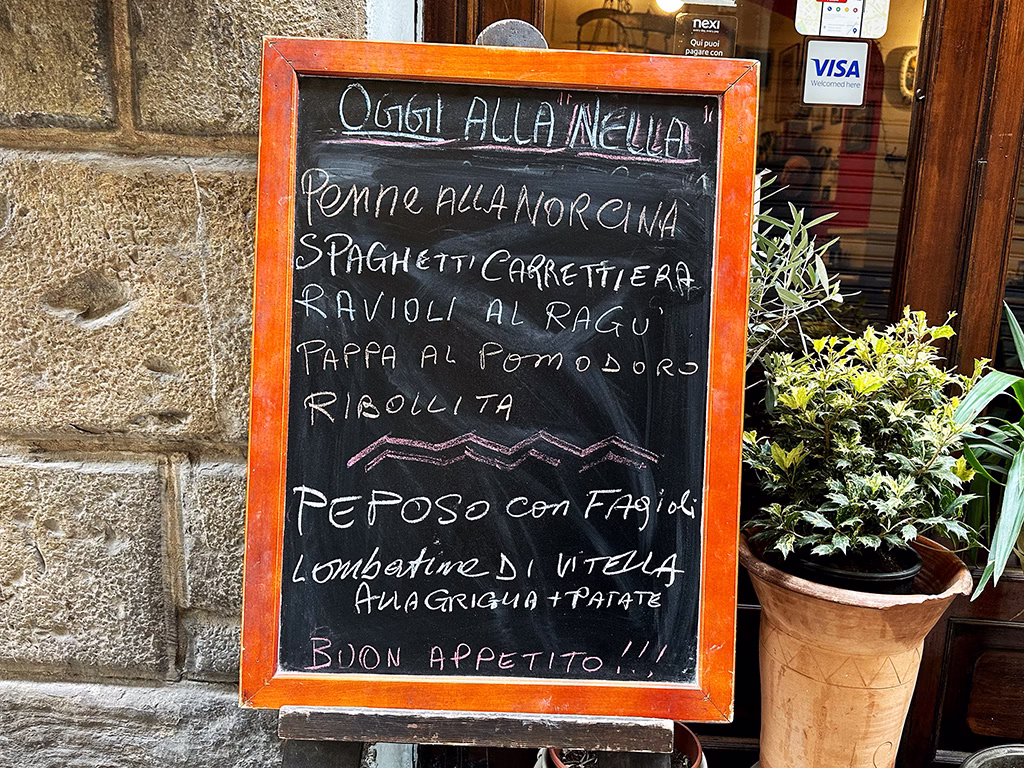 nexi
Qui puoi
pagare con
VISA
Welcomed here
OGGI ALLA "NELLA"
Penne ALLA NORCINA
SPAGHETTI CARRETTIERA
RAVIOLI AL RAGU'
PAPPA AL POMODORO
RIBOLLITA
PEPOSO con FAgioli
Lombatine DI VITELLA
ALLA GRIGLIA + PATATE
BUON APPETITO!!!